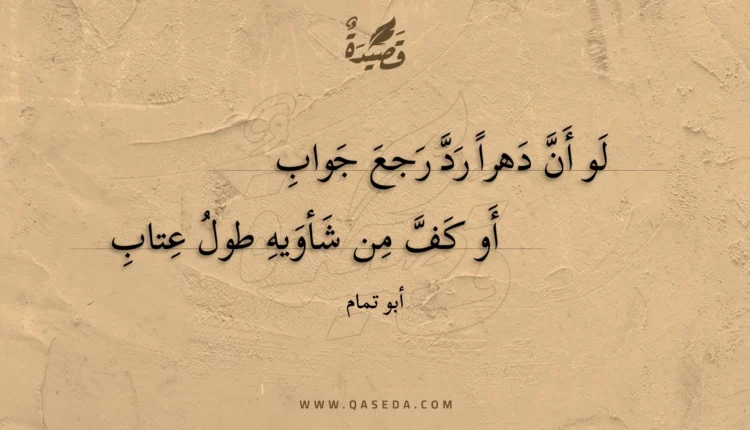 قَصِيدَةٌ
لَو أَنَّ دَهراً رَدَّ رَجعَ جَوابِ
أَو كَفَّ مِن شَأوَيهِ طولُ عِتابِ
أبو تمام
WWW.QASEDA.COM